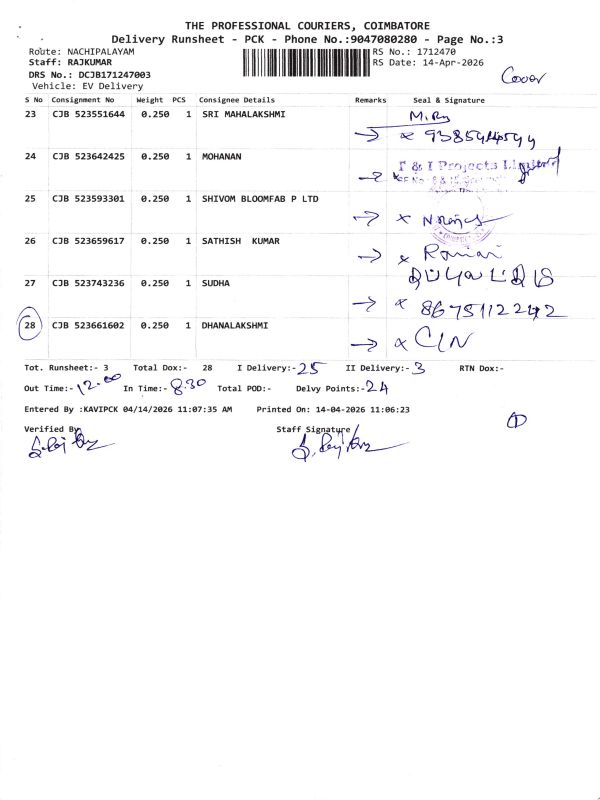 THE PROFESSIONAL COURIERS, COIMBATORE
Delivery Runsheet - PCK - Phone No.:9047080280 - Page No.:3
Route: NACHIPALAYAM RS No.: 1712470
Staff: RAJKUMAR RS Date: 14-Apr-2026
DRS No.: DCJB171247003 Cover
Vehicle: EV Delivery
S No Consignment No Weight PCS Consignee Details Remarks Seal & Signature
23 CJB 523551644 0.250 1 SRI MAHALAKSHMI
24 CJB 523642425 0.250 1 MOHANAN Projects Limited
25 CJB 523593301 0.250 1 SHIVOM BLOOMFAB P LTD
26 CJB 523659617 0.250 1 SATHISH KUMAR
27 CJB 523743236 0.250 1 SUDHA x 8675112242
28 CJB 523661602 0.250 1 DHANALAKSHMI x C/N
Tot. Runsheet:- 3 Total Dox:- 28 I Delivery:- 25 II Delivery:- 3 RTN Dox:-
Out Time:- 12.00 In Time:- 8.30 Total POD:- Delvy Points:- 24
Entered By :KAVIPCK 04/14/2026 11:07:35 AM Printed On: 14-04-2026 11:06:23
Verified By Staff Signature